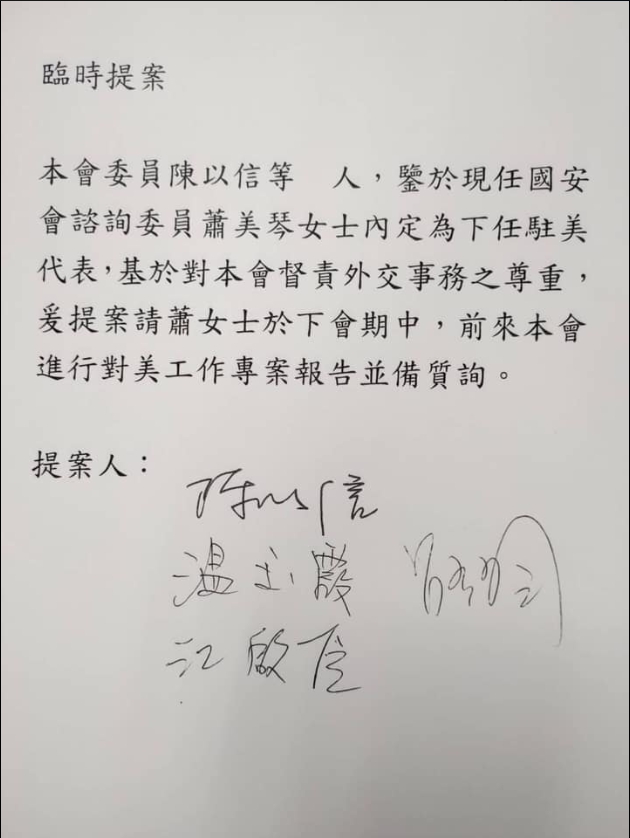 臨時提案
本會委員陳以信等　人，鑒於現任國安
會諮詢委員蕭美琴女士內定為下任駐美
代表，基於對本會督責外交事務之尊重，
爰提案請蕭女士於下會期中，前來本會
進行對美工作專案報告並備質詢。
提案人：
陳以信
溫玉霞
江啟臣